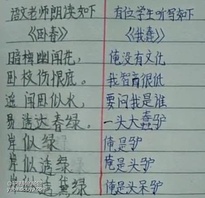 语文老师朗读如下
《卧春》
暗梅幽闻花,
卧枝伤恨底。
遥闻卧似水,
易透达春绿。
岸似绿
岸似透绿
岸似透黛绿
有位学生听写如下
《我蠢》
俺没有文化
我智商很低
要问我是谁
一头大蠢驴
俺是驴
俺是头驴
俺是头呆驴